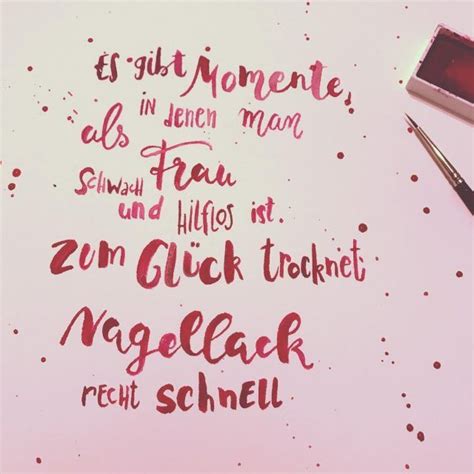 Es gibt Momente,
in denen man
als Frau
schwach
und hilflos ist.
Zum Glück trocknet
Nagellack
recht schnell